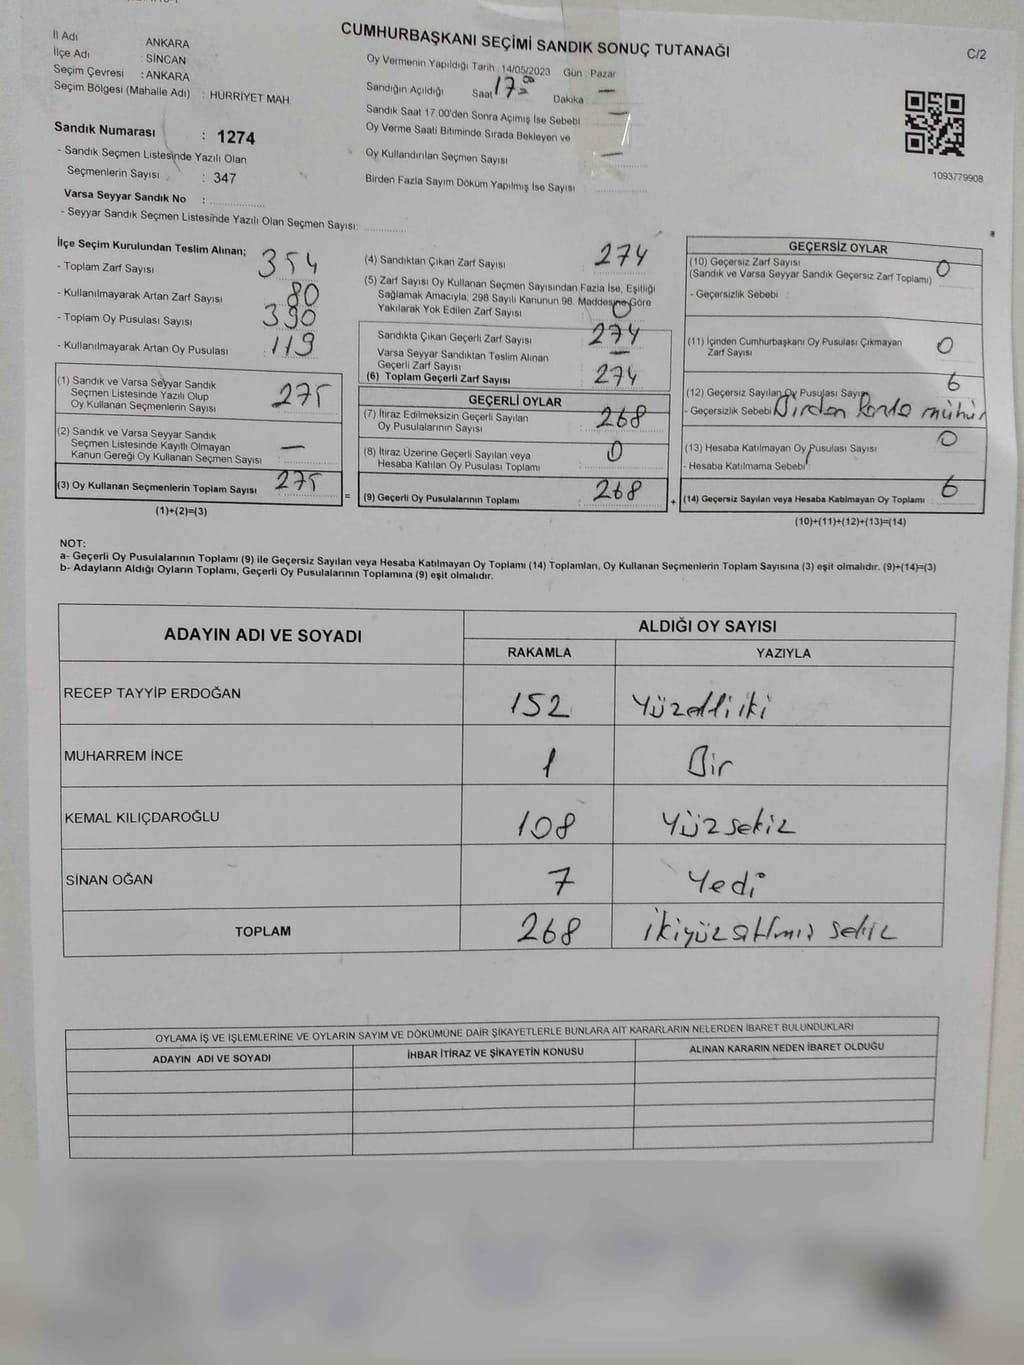 CUMHURBAŞKANI SEÇİMİ SANDIK SONUÇ TUTANAĞI
C/2
İl Adı ANKARA
İlçe Adı : SİNCAN
Seçim Çevresi : ANKARA
Seçim Bölgesi (Mahalle Adı) : HÜRRİYET MAH
Sandık Numarası : 1274
- Sandık Seçmen Listesinde Yazılı Olan
Seçmenlerin Sayısı : 347
Varsa Seyyar Sandık No :
- Seyyar Sandık Seçmen Listesinde Yazılı Olan Seçmen Sayısı:
Oy Vermenin Yapıldığı Tarih : 14/05/2023 Gün : Pazar
Sandığın Açıldığı Saat 17 00 Dakika —
Sandık Saat 17:00'den Sonra Açımış İse Sebebi —
Oy Verme Saati Bitiminde Sırada Bekleyen ve
Oy Kullandırılan Seçmen Sayısı —
Birden Fazla Sayım Döküm Yapılmış İse Sayısı
1093779908
İlçe Seçim Kurulundan Teslim Alınan;
- Toplam Zarf Sayısı 354
- Kullanılmayarak Artan Zarf Sayısı 80
- Toplam Oy Pusulası Sayısı 390
- Kullanılmayarak Artan Oy Pusulası 119
(1) Sandık ve Varsa Seyyar Sandık
Seçmen Listesinde Yazılı Olup
Oy Kullanan Seçmenlerin Sayısı 275
(2) Sandık ve Varsa Seyyar Sandık
Seçmen Listesinde Kayıtlı Olmayan
Kanun Gereği Oy Kullanan Seçmen Sayısı —
(3) Oy Kullanan Seçmenlerin Toplam Sayısı 275
(1)+(2)=(3)
(4) Sandıktan Çıkan Zarf Sayısı 274
(5) Zarf Sayısı Oy Kullanan Seçmen Sayısından Fazla İse, Eşitliği
Sağlamak Amacıyla; 298 Sayılı Kanunun 98. Maddesine Göre
Yakılarak Yok Edilen Zarf Sayısı 0
Sandıkta Çıkan Geçerli Zarf Sayısı 274
Varsa Seyyar Sandıktan Teslim Alınan
Geçerli Zarf Sayısı —
(6) Toplam Geçerli Zarf Sayısı 274
GEÇERLİ OYLAR
(7) İtiraz Edilmeksizin Geçerli Sayılan
Oy Pusulalarının Sayısı 268
(8) İtiraz Üzerine Geçerli Sayılan veya
Hesaba Katılan Oy Pusulası Toplamı 0
= (9) Geçerli Oy Pusulalarının Toplamı 268
GEÇERSİZ OYLAR
(10) Geçersiz Zarf Sayısı
(Sandık ve Varsa Seyyar Sandık Geçersiz Zarf Toplamı) 0
- Geçersizlik Sebebi :
(11) İçinden Cumhurbaşkanı Oy Pusulası Çıkmayan
Zarf Sayısı 0
(12) Geçersiz Sayılan Oy Pusulası Sayısı 6
- Geçersizlik Sebebi Birden fazla mühür
(13) Hesaba Katılmayan Oy Pusulası Sayısı 0
- Hesaba Katılmama Sebebi
+ (14) Geçersiz Sayılan veya Hesaba Katılmayan Oy Toplamı 6
(10)+(11)+(12)+(13)=(14)
NOT:
a- Geçerli Oy Pusulalarının Toplamı (9) ile Geçersiz Sayılan veya Hesaba Katılmayan Oy Toplamı (14) Toplamları, Oy Kullanan Seçmenlerin Toplam Sayısına (3) eşit olmalıdır. (9)+(14)=(3)
b- Adayların Aldığı Oyların Toplamı, Geçerli Oy Pusulalarının Toplamına (9) eşit olmalıdır.
ADAYIN ADI VE SOYADI ALDIĞI OY SAYISI
RAKAMLA YAZIYLA
RECEP TAYYİP ERDOĞAN 152 Yüzelliiki
MUHARREM İNCE 1 Bir
KEMAL KILIÇDAROĞLU 108 Yüzsekiz
SİNAN OĞAN 7 Yedi
TOPLAM 268 ikiyüzaltmış sekiz
OYLAMA İŞ VE İŞLEMLERİNE VE OYLARIN SAYIM VE DÖKÜMÜNE DAİR ŞİKAYETLERLE BUNLARA AİT KARARLARIN NELERDEN İBARET BULUNDUKLARI
ADAYIN ADI VE SOYADI İHBAR İTİRAZ VE ŞİKAYETİN KONUSU ALINAN KARARIN NEDEN İBARET OLDUĞU